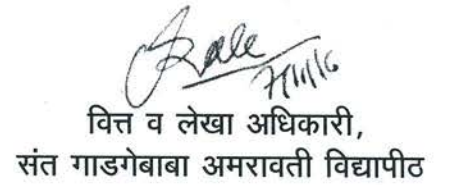 वित्त व लेखा अधिकारी,
संत गाडगेबाबा अमरावती विद्यापीठ